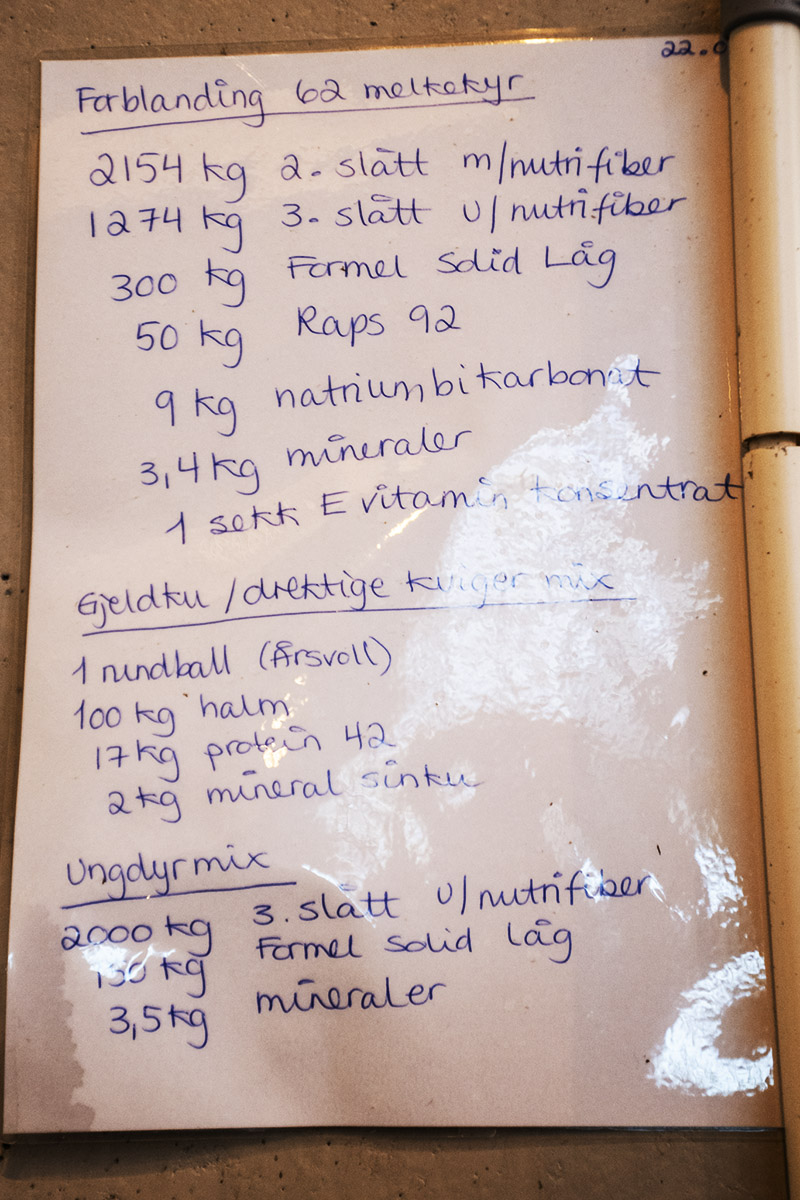 22.0
Forblanding 62 melkekyr
2154 kg 2. slått m/nutrifiber
1274 kg 3. slått u/nutrifiber
300 kg Formel Solid Låg
50 kg Raps 92
9 kg natriumbikarbonat
3,4 kg mineraler
1 sekk E vitamin konsentrat
Gjeldku / drektige kviger mix
1 rundball (Årsvoll)
100 kg halm
17 kg protein 42
2 kg mineral sinku
Ungdyrmix
2000 kg 3. slått u/nutrifiber
130 kg Formel Solid låg
3,5 kg mineraler